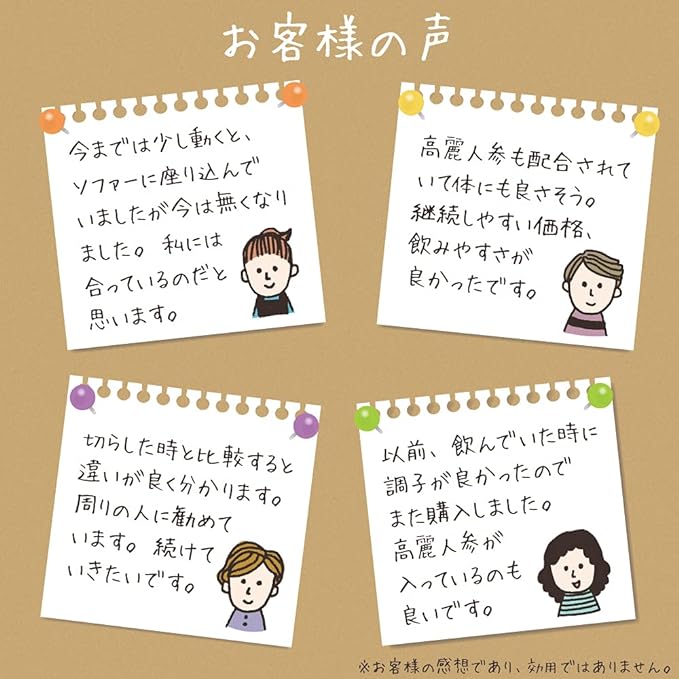 お客様の声
今までは少し動くと、
ソファーに座り込んで
いましたが今は無くなり
ました。私には
合っているのだと
思います。
高麗人参も配合されて
いて体にも良さそう。
継続しやすい価格、
飲みやすさが
良かったです。
切らした時と比較すると
違いが良く分かります。
周りの人に勧めて
います。続けて
いきたいです。
以前、飲んでいた時に
調子が良かったので
また購入しました。
高麗人参が
入っているのも
良いです。
※お客様の感想であり、効用ではありません。